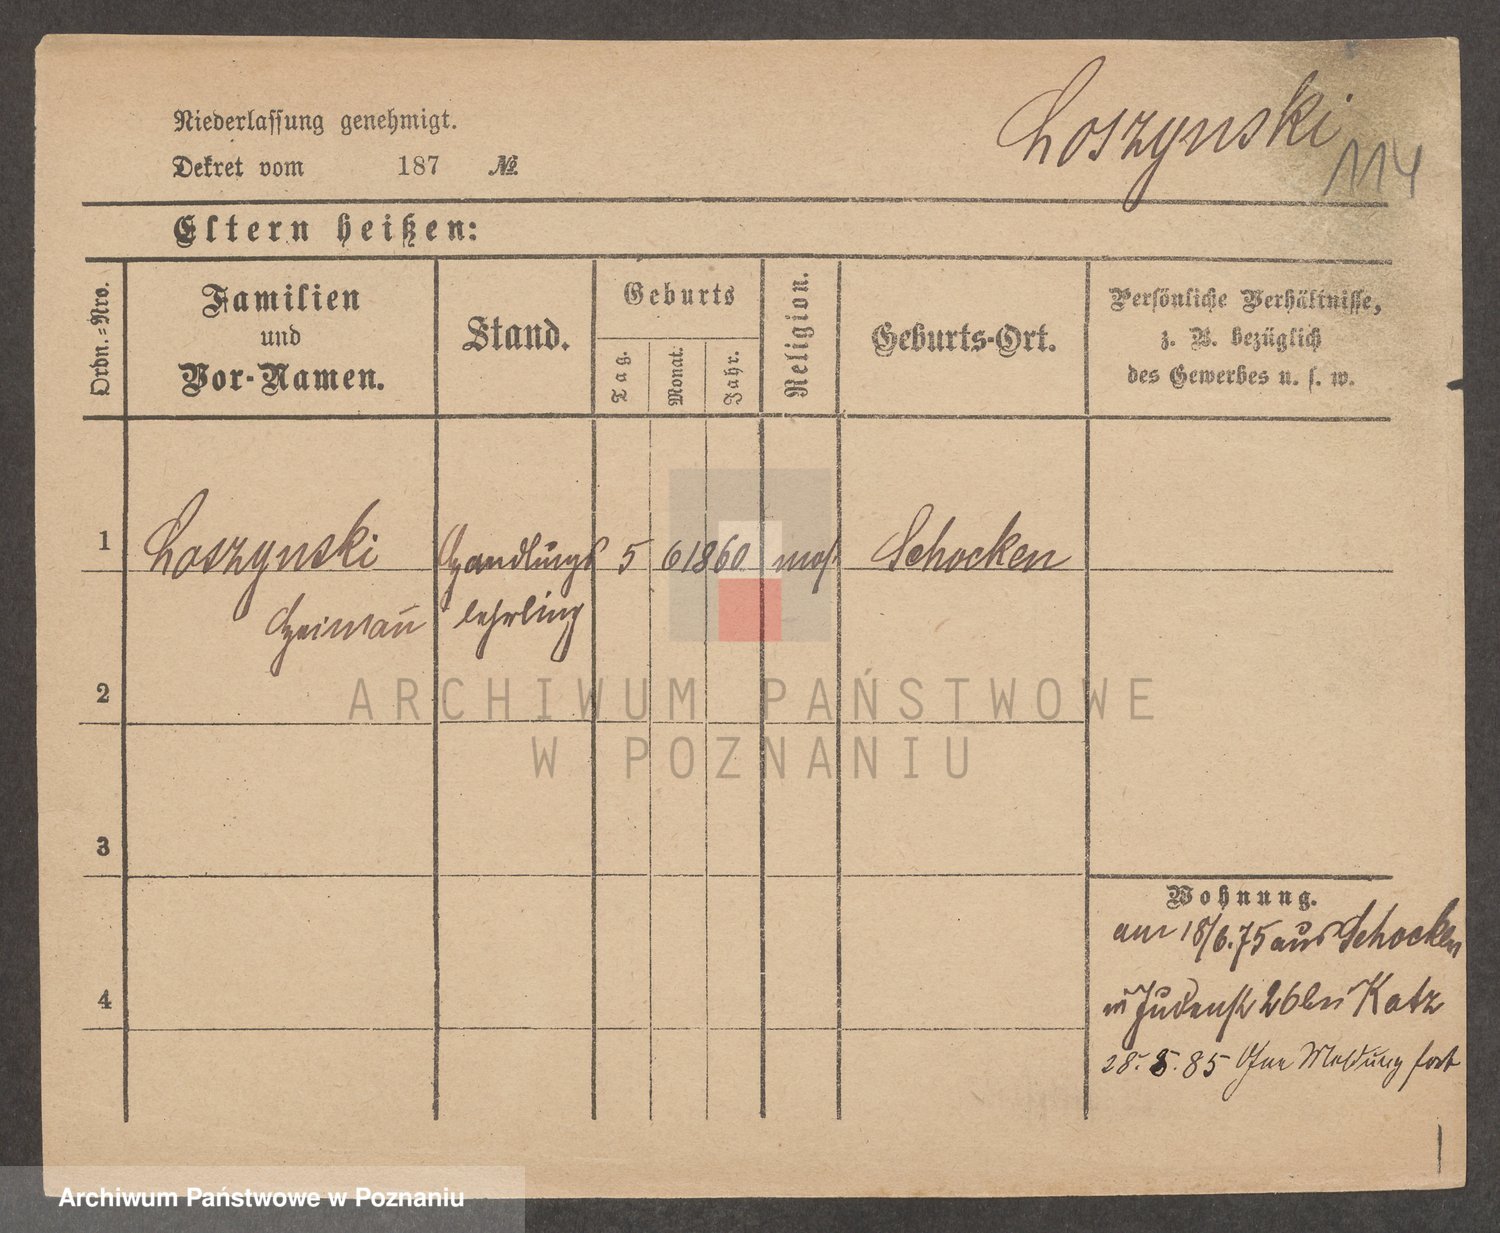 Loszynski
114
Niederlassung genehmigt.
Dekret vom 187 №
Eltern heißen:
Ordn.=Nro.
Familien
und
Vor-Namen.
Stand.
Geburts
Tag.
Monat.
Jahr.
Religion.
Geburts-Ort.
Persönliche Verhältnisse,
z. B. bezüglich
des Gewerbes u. s. w.
1 Loszynski Handlungs 5 6 1860 mos. Schocken
Heiman̄ lehrling
2
3
4
Wohnung.
am 18/6.75 aus Schocken
in Judenstr 26 bei Katz
28. 8. 85 Ohne Meldung fort
ARCHIWUM PAŃSTWOWE
W POZNANIU
Archiwum Państwowe w Poznaniu